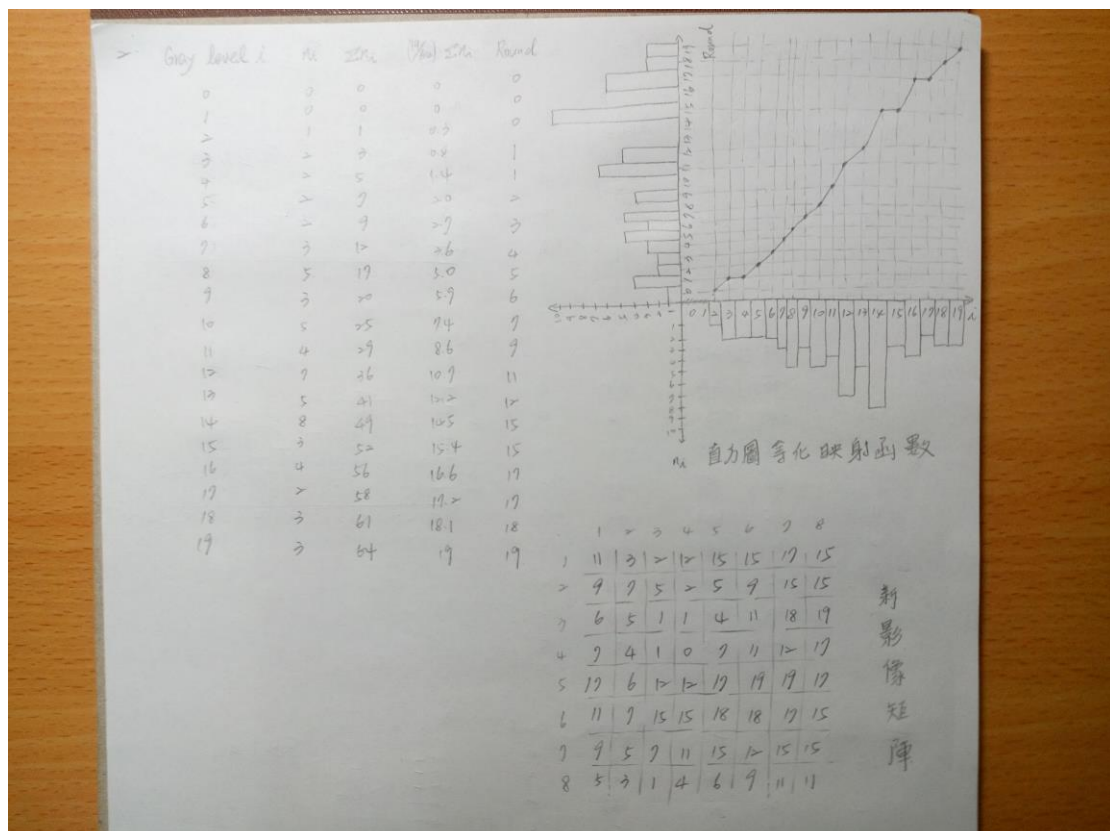 2 Gray Level i ni Σni (19/64) Σni Round
0 0 0 0 0
1 0 0 0 0
2 1 1 0.3 0
3 2 3 0.8 1
4 2 5 1.4 1
5 2 7 2.0 2
6 2 9 2.7 3
7 3 12 3.6 4
8 5 17 5.0 5
9 3 20 5.9 6
10 5 25 7.4 7
11 4 29 8.6 9
12 7 36 10.7 11
13 5 41 12.2 12
14 8 49 14.5 15
15 3 52 15.4 15
16 4 56 16.6 17
17 2 58 17.2 17
18 3 61 18.1 18
19 3 64 19 19
Round
0 1 2 3 4 5 6 7 8 9 10 11 12 13 14 15 16 17 18 19 i
ni
直方圖等化映射函數
1 2 3 4 5 6 7 8
1 11 3 2 12 15 15 17 15
2 9 7 5 2 5 9 15 15
3 6 5 1 1 4 11 18 19
4 7 4 1 0 7 11 12 17
5 17 6 12 12 17 19 19 17
6 11 7 15 15 18 18 17 15
7 9 5 7 11 15 12 15 15
8 5 3 1 4 6 9 11 11
新影像矩陣